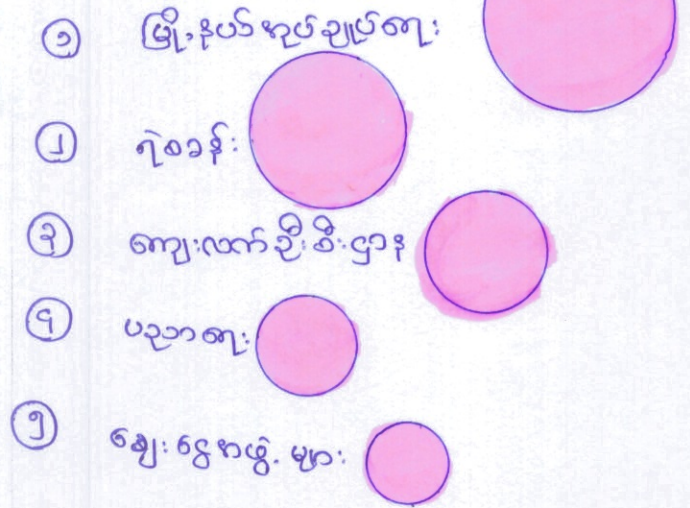 ၁ မြို့နယ်အုပ်ချုပ်ရေး
၂ ရဲစခန်း
၃ ကျေးလက်ဦးစီးဌာန
၄ ပညာရေး
၅ ချေးငွေအဖွဲ့များ